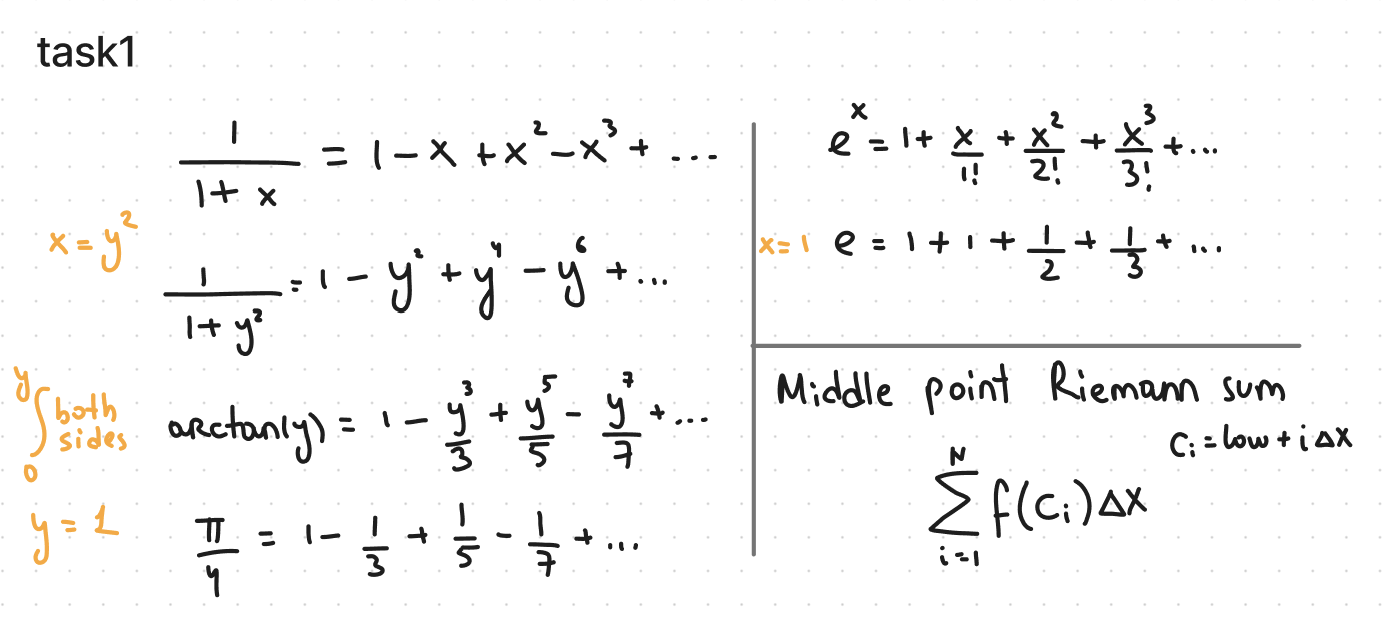 task1
1/(1+x) = 1 - x + x² - x³ + ...
x = y²
1/(1+y²) = 1 - y² + y⁴ - y⁶ + ...
∫₀ʸ both sides
arctan(y) = 1 - y³/3 + y⁵/5 - y⁷/7 + ...
y = 1
π/4 = 1 - 1/3 + 1/5 - 1/7 + ...
eˣ = 1 + x/1! + x²/2! + x³/3! + ...
x = 1
e = 1 + 1 + 1/2 + 1/3 + ...
Middle point Riemann sum
Cᵢ = low + i Δx
∑ᵢ₌₁ᴺ f(Cᵢ) Δx